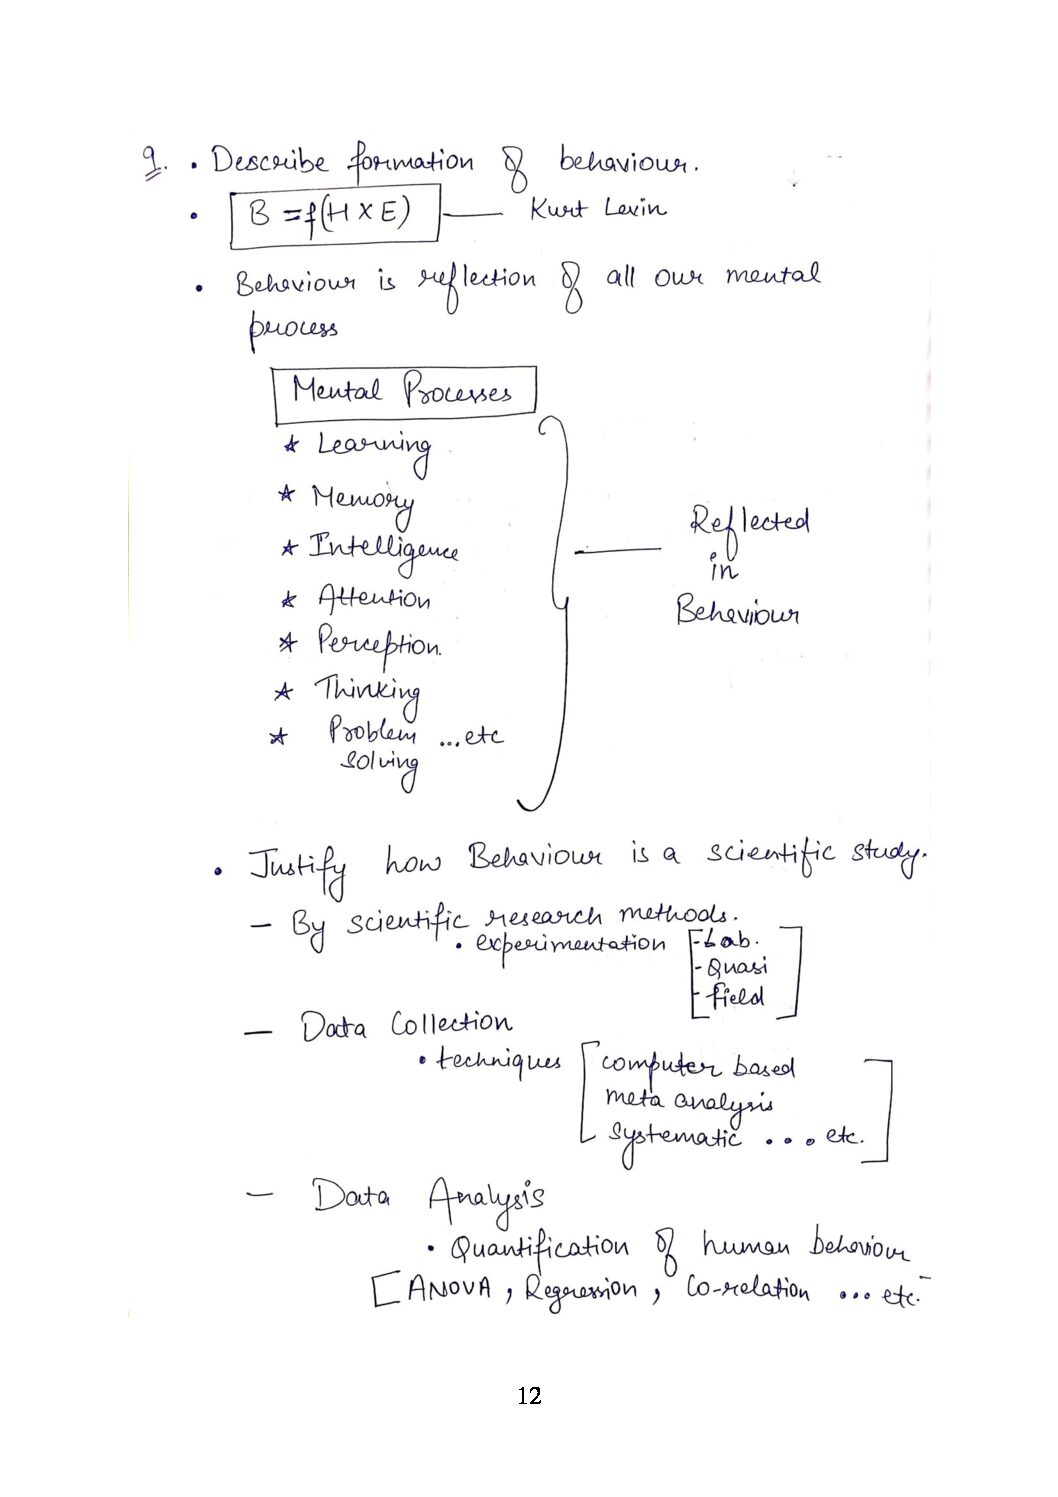 9. • Describe formation of behaviour.
• B = f(H X E) — Kurt Levin
• Behaviour is reflection of all our mental
process
Mental Processes
★ Learning
★ Memory
★ Intelligence
★ Attention
★ Perception.
★ Thinking
★ Problem ...etc
solving
Reflected
in
Behaviour
• Justify how Behaviour is a scientific study.
– By scientific research methods.
• experimentation [- Lab.
- Quasi
- field ]
— Data Collection
• techniques [ computer based
meta analysis
systematic .... etc. ]
— Data Analysis
• Quantification of human behaviour
[ ANOVA, Regression, Co-relation ... etc.
12